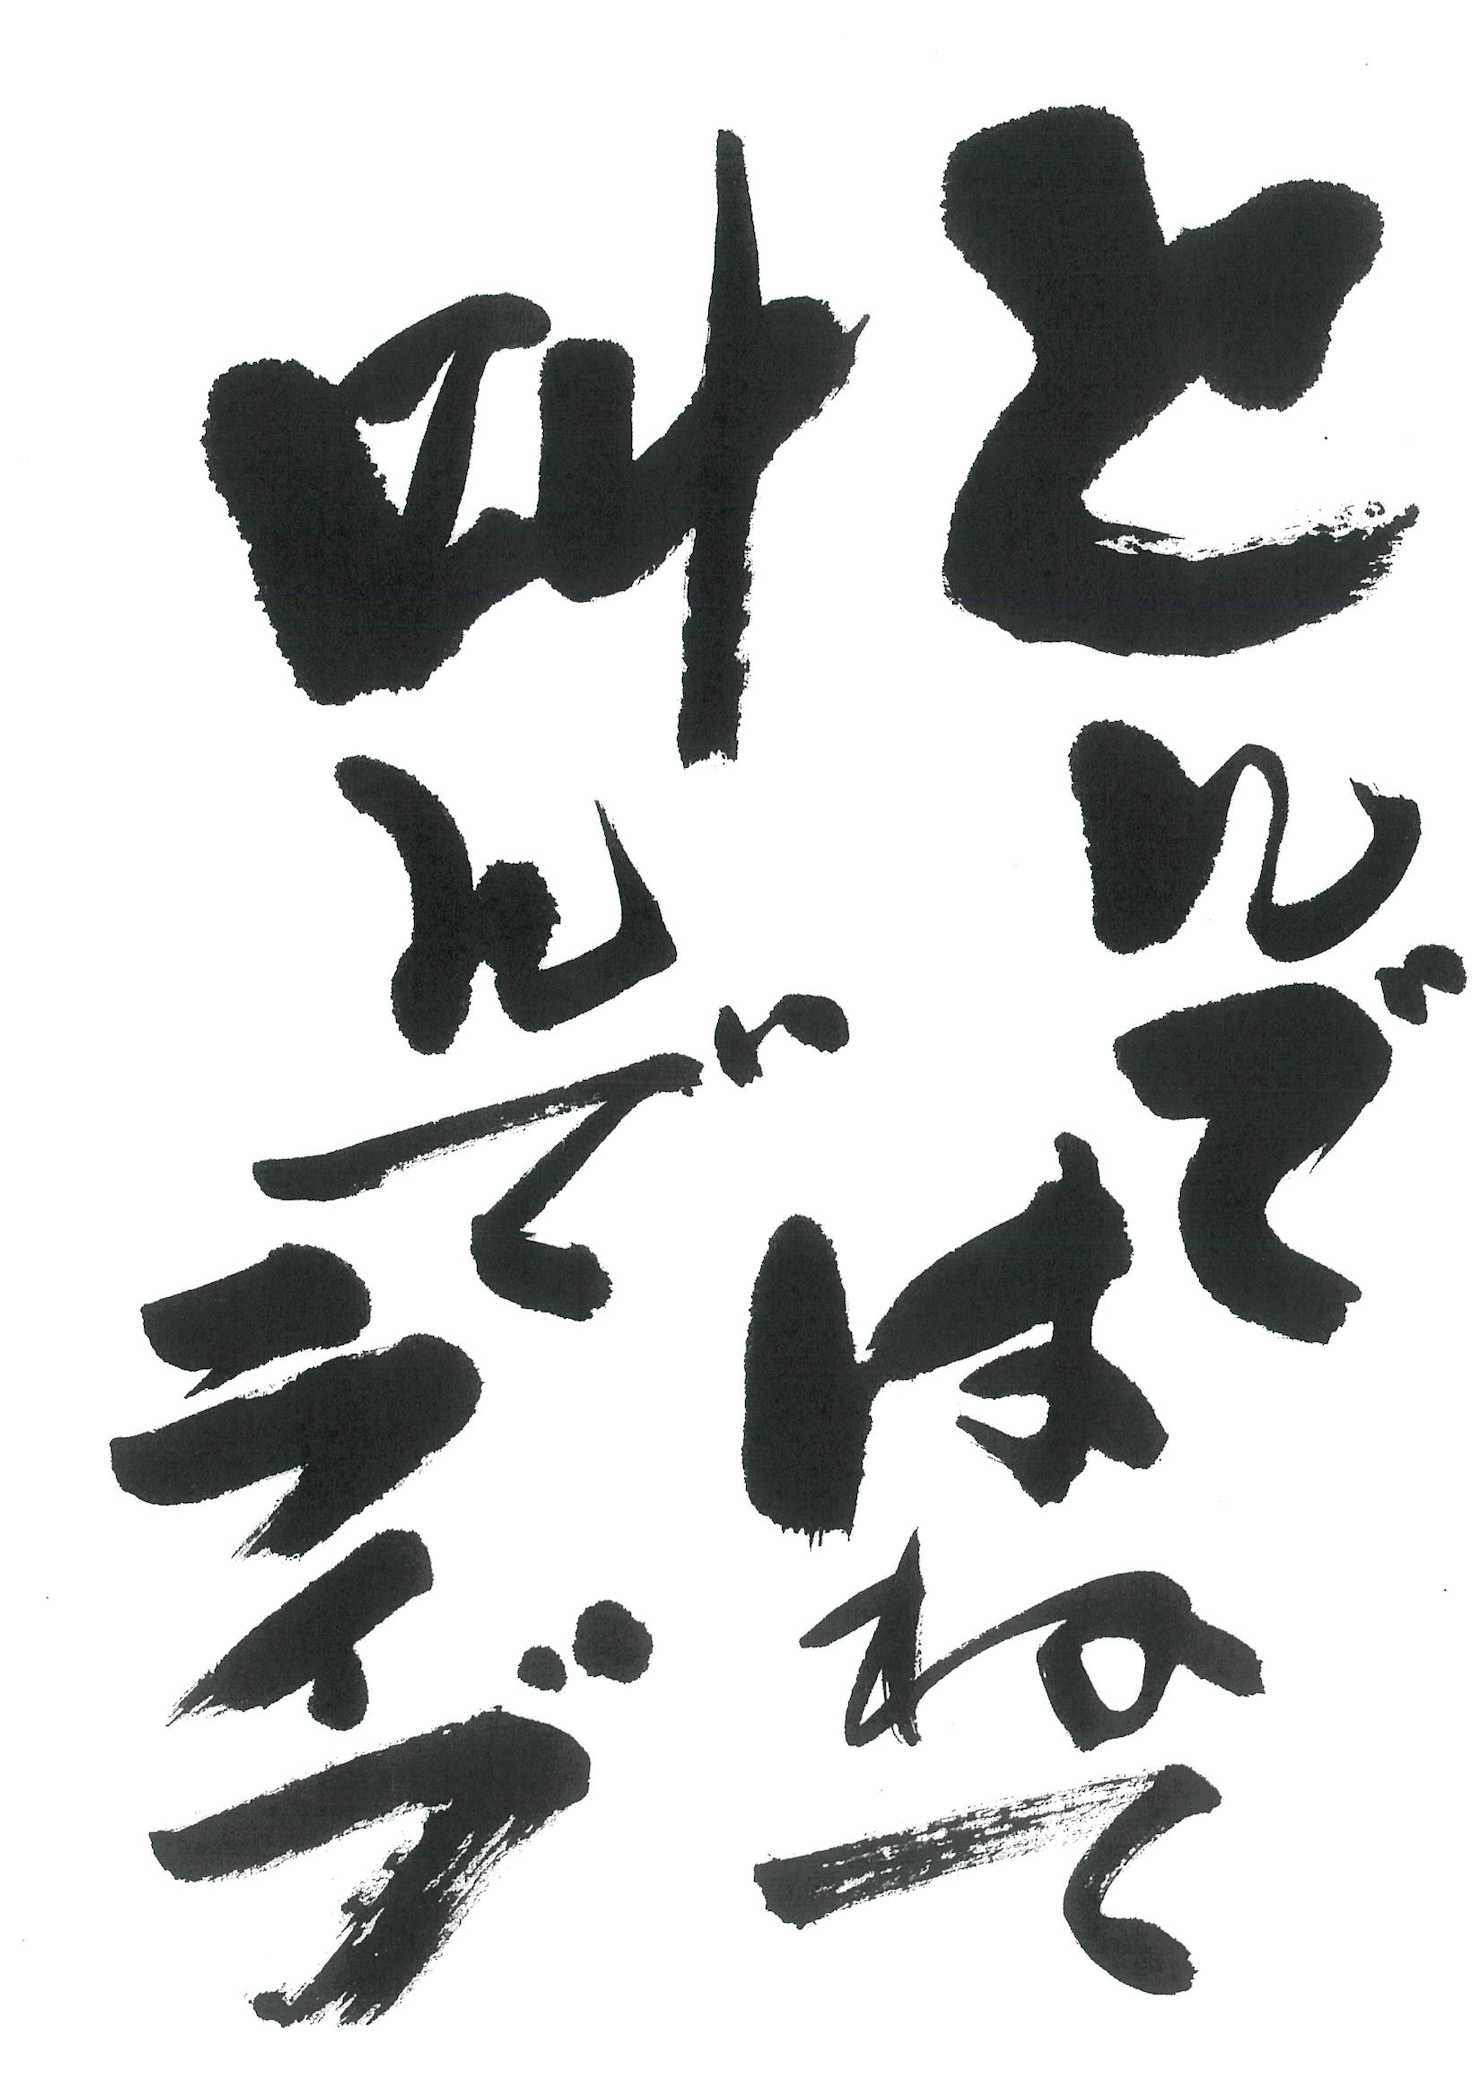 とんではねて
叫んでライブ